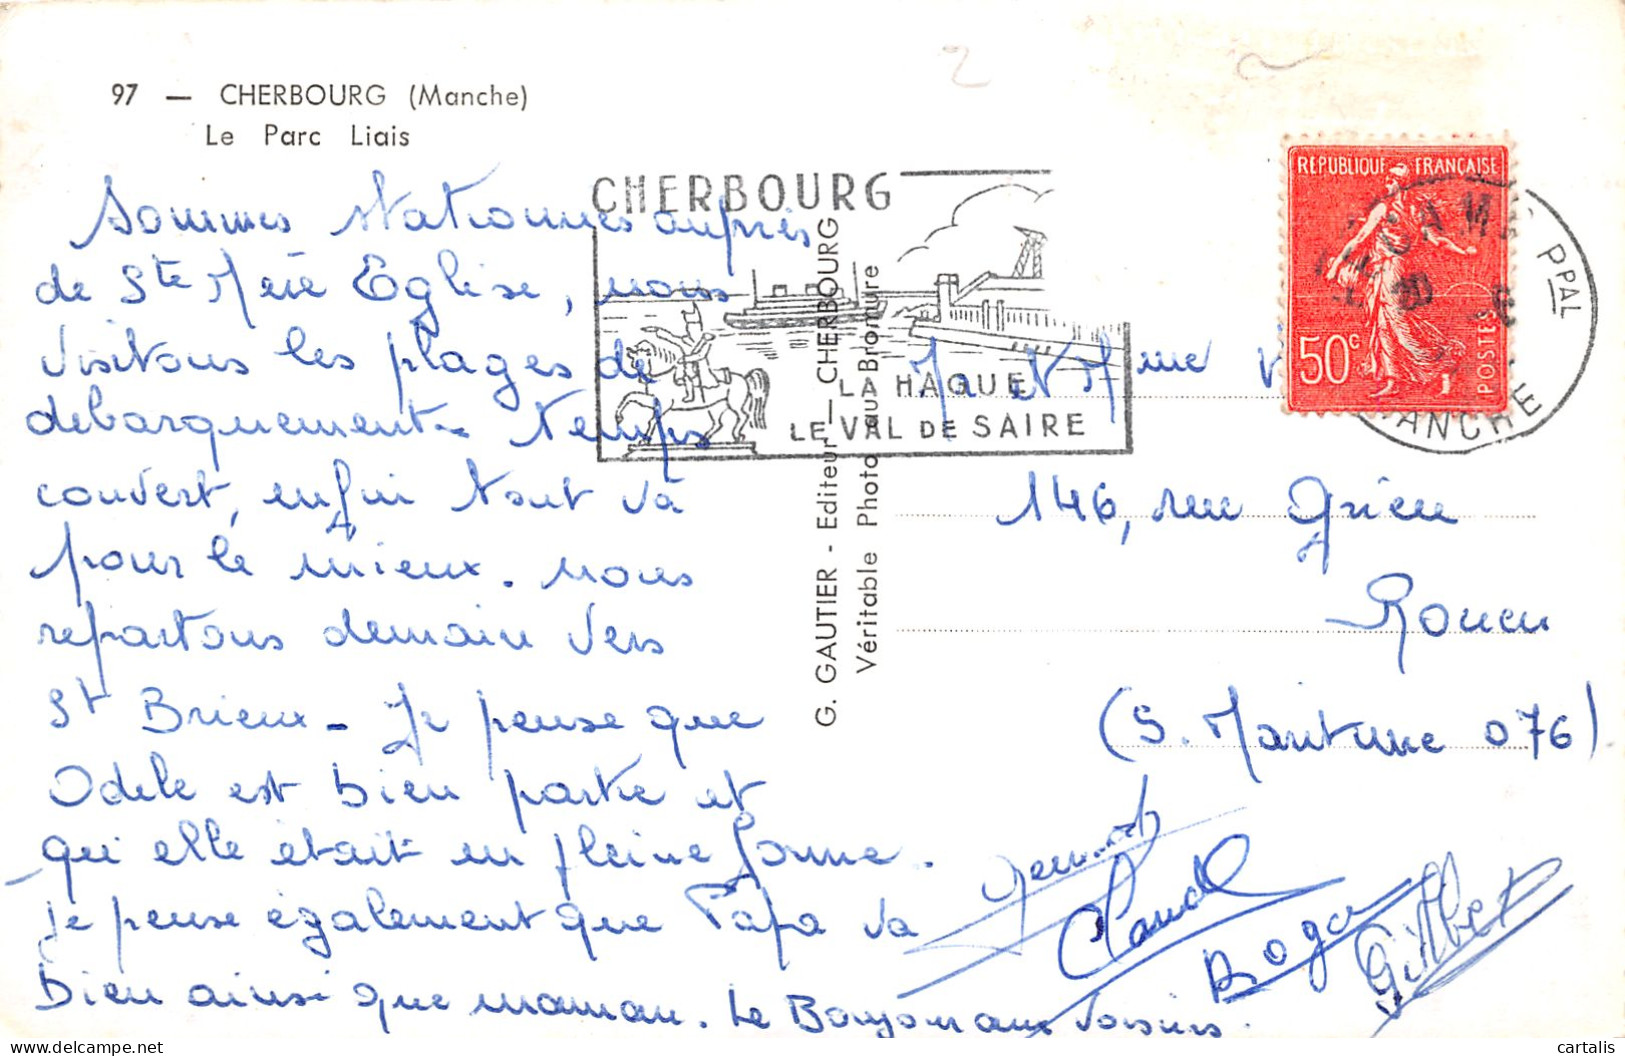 97 — CHERBOURG (Manche)
Le Parc Liais
Sommes stationnés auprès
de Ste Mère Eglise, nous
visitons les plages de
debarquement - temps
couvert, enfin tout va
pour le mieux. nous
repartons demain vers
St Brieux - Je pense que
Odele est bien partie et
qui elle était en pleine forme.
Je pense également que Papa va
bien ainsi que maman. Le Bonjour aux voisins.
CHERBOURG
LA HAGUE
LE VAL DE SAIRE
G. GAUTIER - Editeur - CHERBOURG
Véritable Photo au Bromure
REPUBLIQUE FRANÇAISE
50c
POSTES
PPAL
MANCHE
M et Mme
146, rue Grieu
Rouen
(S. Maritime 076)
Claude
Roger
Gilbert
cartalis